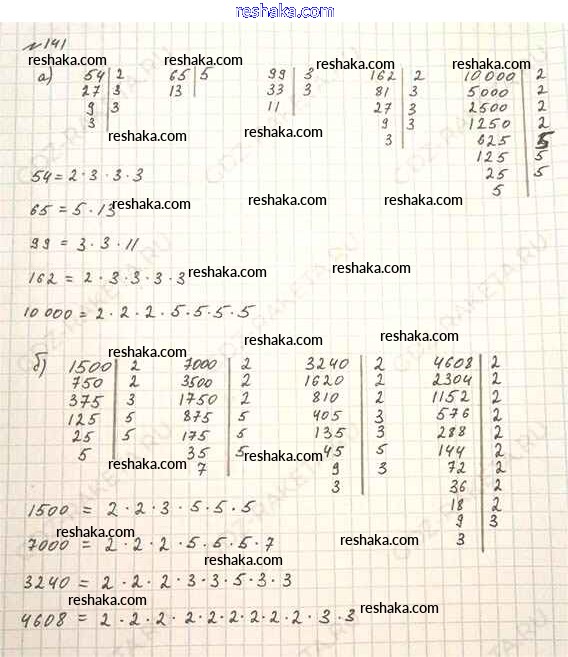 reshaka.com
№ 141
reshaka.com reshaka.com reshaka.com reshaka.com
а) 54 | 2 65 | 5 99 | 3 162 | 2 10 000 | 2
27 | 3 13 33 | 3 81 | 3 5000 | 2
9 | 3 11 27 | 3 2500 | 2
3 9 | 3 1250 | 2
reshaka.com reshaka.com
3 625 | 5
125 | 5
25 | 5
5
54 = 2 · 3 · 3 · 3
reshaka.com reshaka.com reshaka.com
65 = 5 · 13
99 = 3 · 3 · 11
reshaka.com reshaka.com
162 = 2 · 3 · 3 · 3 · 3
10 000 = 2 · 2 · 2 · 5 · 5 · 5 · 5
reshaka.com reshaka.com
б) 1500 | 2 7000 | 2 3240 | 2 4608 | 2
750 | 2 3500 | 2 1620 | 2 2304 | 2
375 | 3 1750 | 2 810 | 2 1152 | 2
125 | 5 875 | 5 405 | 3 576 | 2
25 | 5 175 | 5 135 | 3 288 | 2
5 35 | 5 45 | 5 144 | 2
reshaka.com reshaka.com
7 9 | 3 72 | 2
3 36 | 2
18 | 2
9 | 3
3
1500 = 2 · 2 · 3 · 5 · 5 · 5
reshaka.com reshaka.com
7000 = 2 · 2 · 2 · 5 · 5 · 5 · 7
reshaka.com
3240 = 2 · 2 · 2 · 3 · 3 · 5 · 3 · 3
reshaka.com reshaka.com
4608 = 2 · 2 · 2 · 2 · 2 · 2 · 2 · 2 · 2 · 3 · 3
reshaka.com